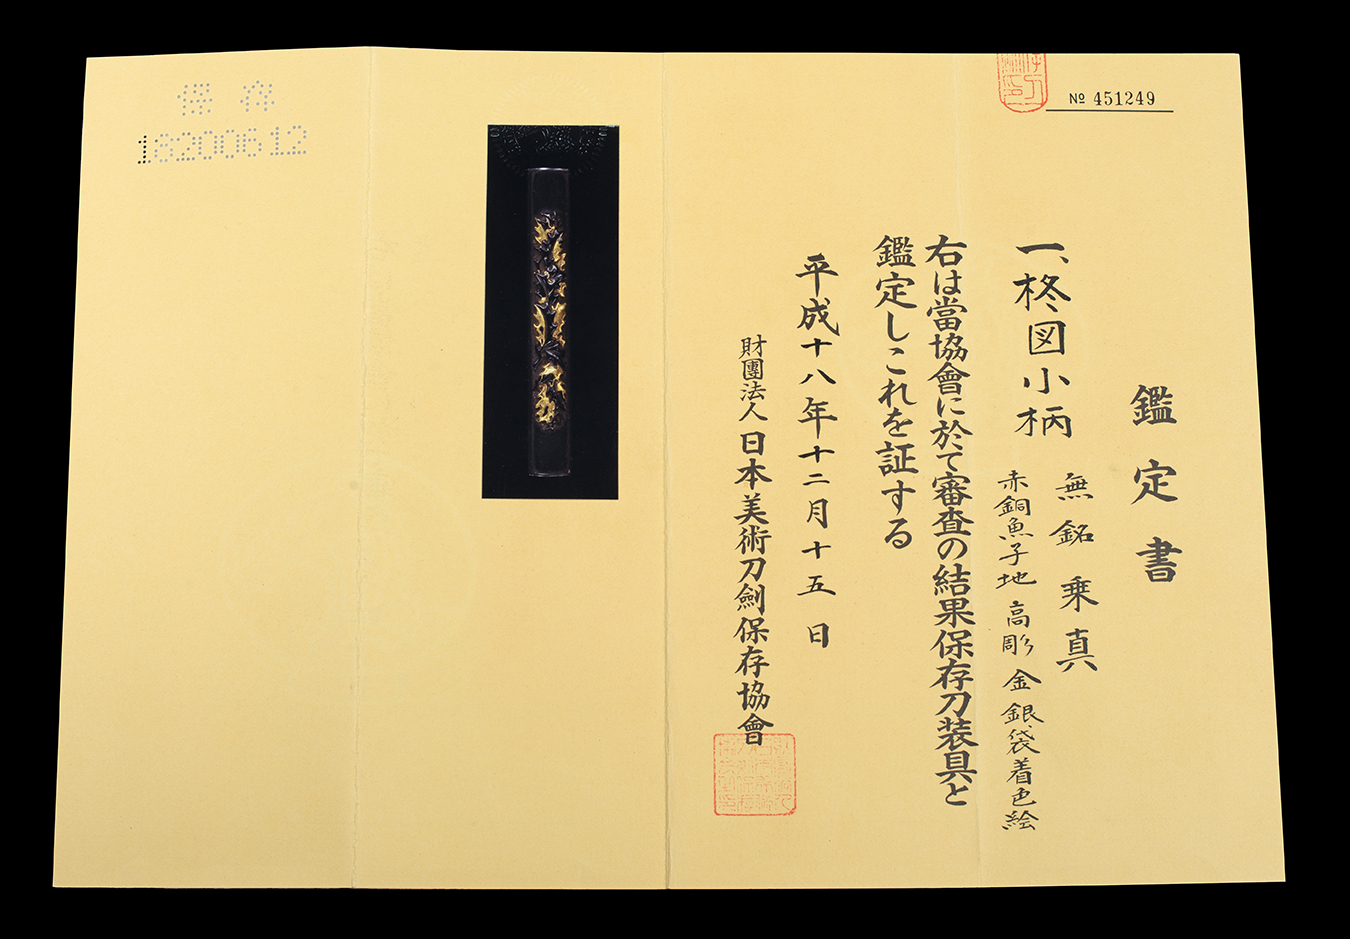 № 451249
鑑定書
一、柊図小柄
無銘乗真
赤銅魚子地 高彫 金銀袋着色絵
右は當協會に於て審査の結果保存刀装具と
鑑定しこれを証する
平成十八年十二月十五日
財團法人 日本美術刀劍保存協會
保存
18200612